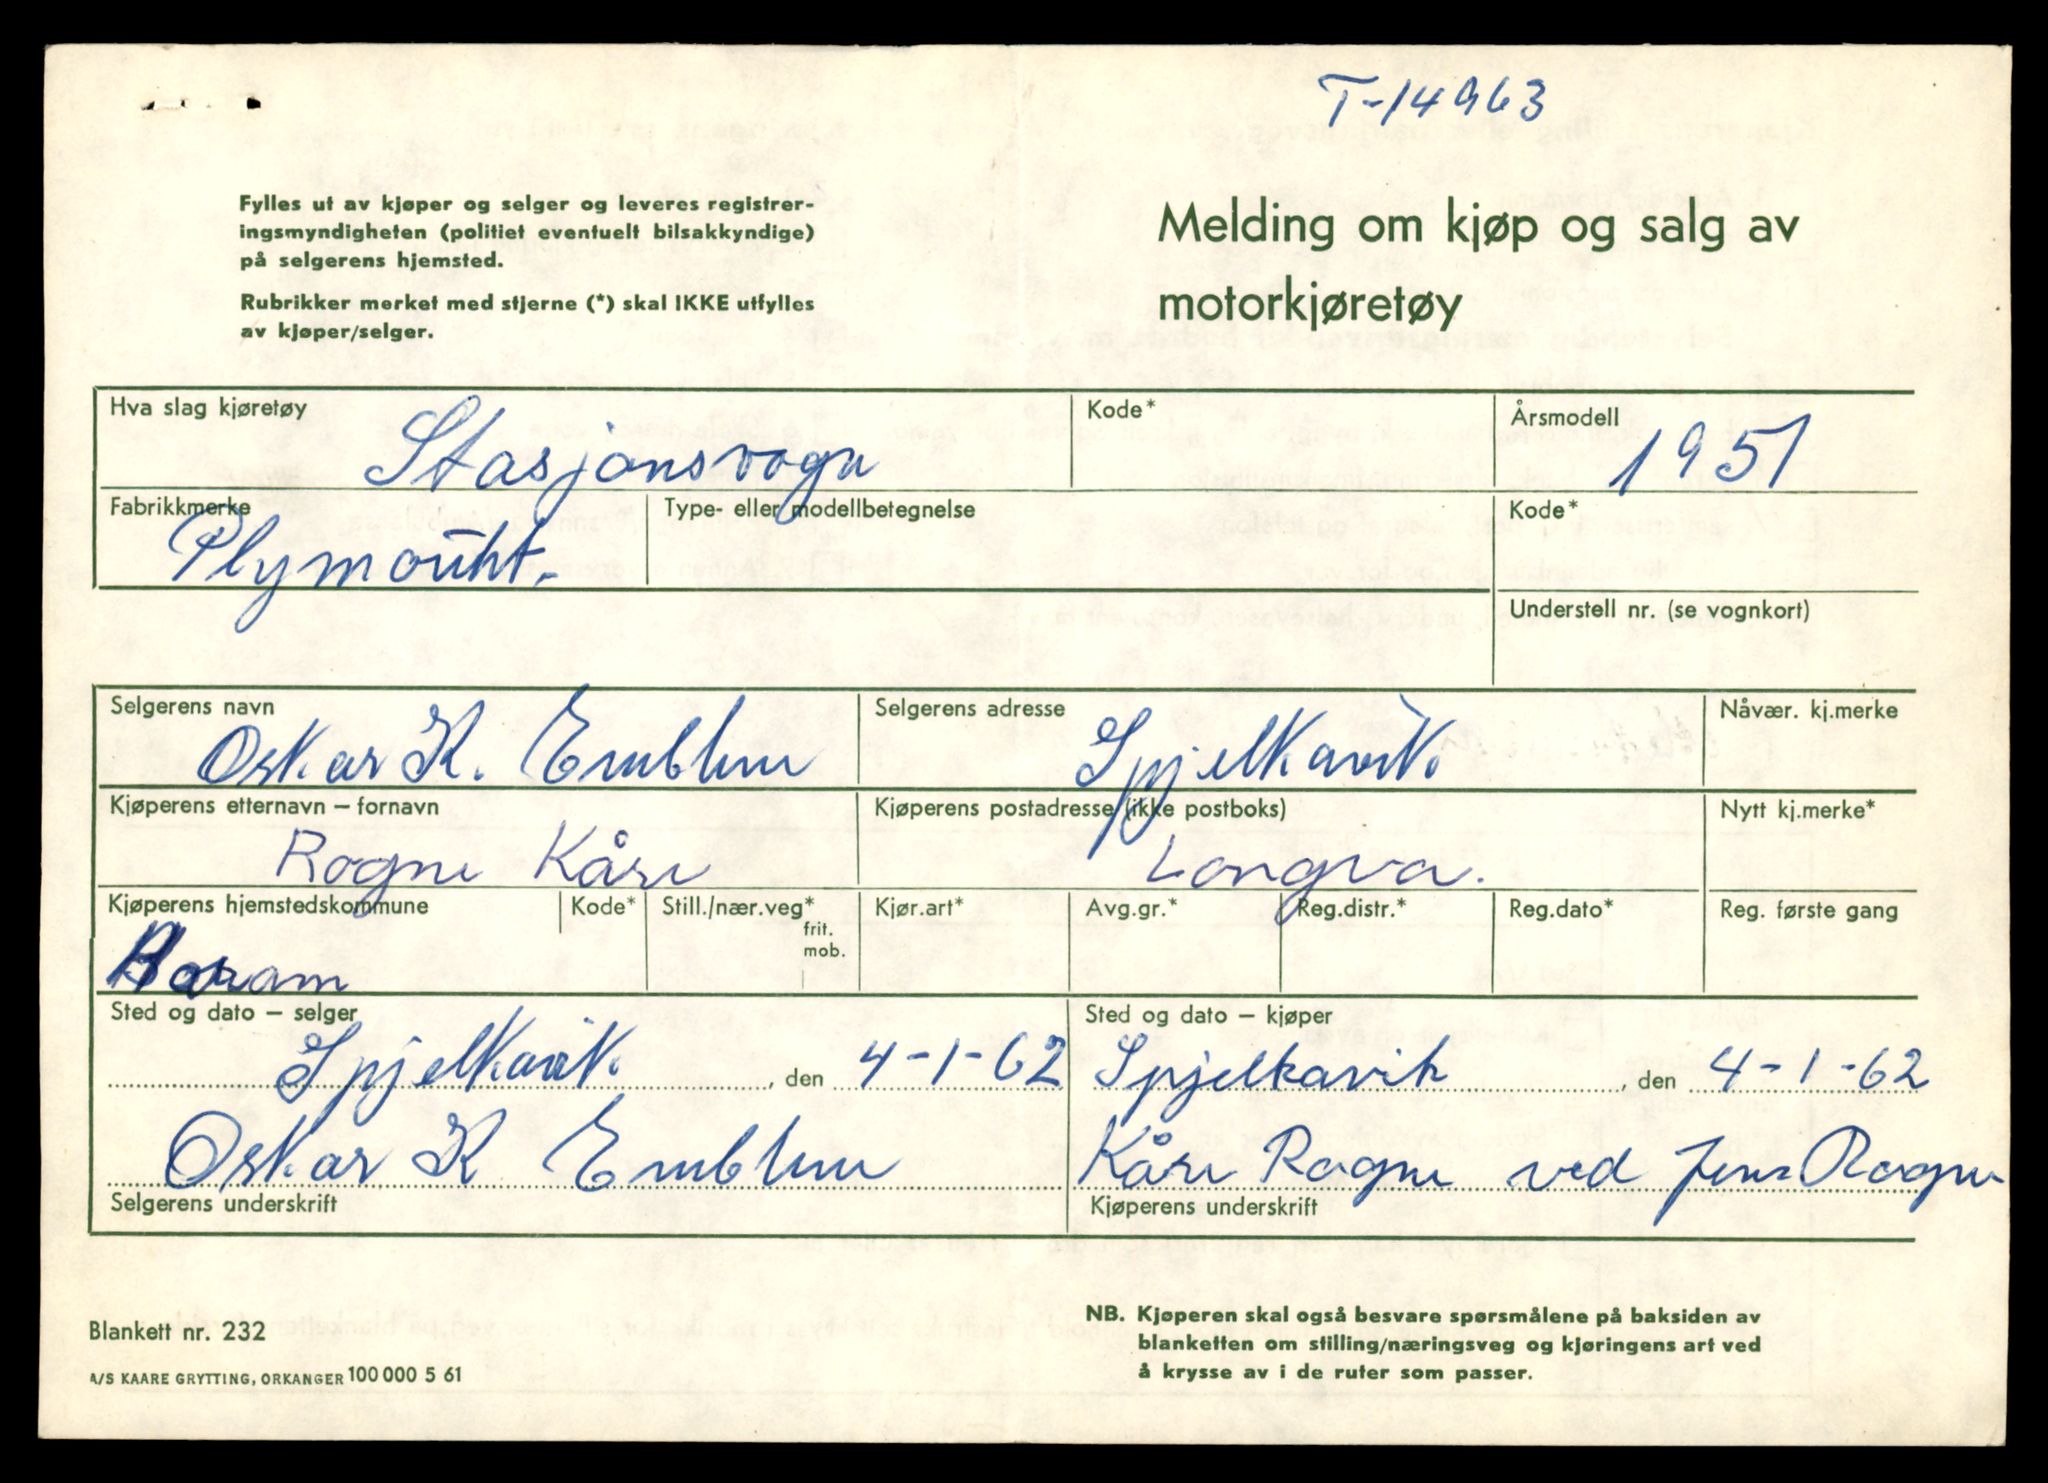 T-14963
Fylles ut av kjøper og selger og leveres registrer-
ingsmyndigheten (politiet eventuelt bilsakkyndige)
på selgerens hjemsted.
Rubrikker merket med stjerne (*) skal IKKE utfylles
av kjøper/selger.
Melding om kjøp og salg av
motorkjøretøy
Hva slag kjøretøy Kode* Årsmodell
Stasjonsvogn 1951
Fabrikkmerke Type- eller modellbetegnelse Kode*
Plymouht.
Understell nr. (se vognkort)
Selgerens navn Selgerens adresse Nåvær. kj.merke
Oskar K. Emblem Spjelkavik.
Kjøperens etternavn – fornavn Kjøperens postadresse (ikke postboks) Nytt kj.merke*
Rogne Kåre Longva.
Kjøperens hjemstedskommune Kode* Still./nær.veg* Kjør.art* Avg.gr.* Reg.distr.* Reg.dato* Reg. første gang
frit.
mob.
Haram
Sted og dato – selger Sted og dato – kjøper
Spjelkavik. , den 4-1-62 Spjelkavik , den 4-1-62
Oskar K Emblem Kåre Rogne ved Jens Rogne
Selgerens underskrift Kjøperens underskrift
Blankett nr. 232
A/S KAARE GRYTTING, ORKANGER 100 000 5 61
NB. Kjøperen skal også besvare spørsmålene på baksiden av
blanketten om stilling/næringsveg og kjøringens art ved
å krysse av i de ruter som passer.